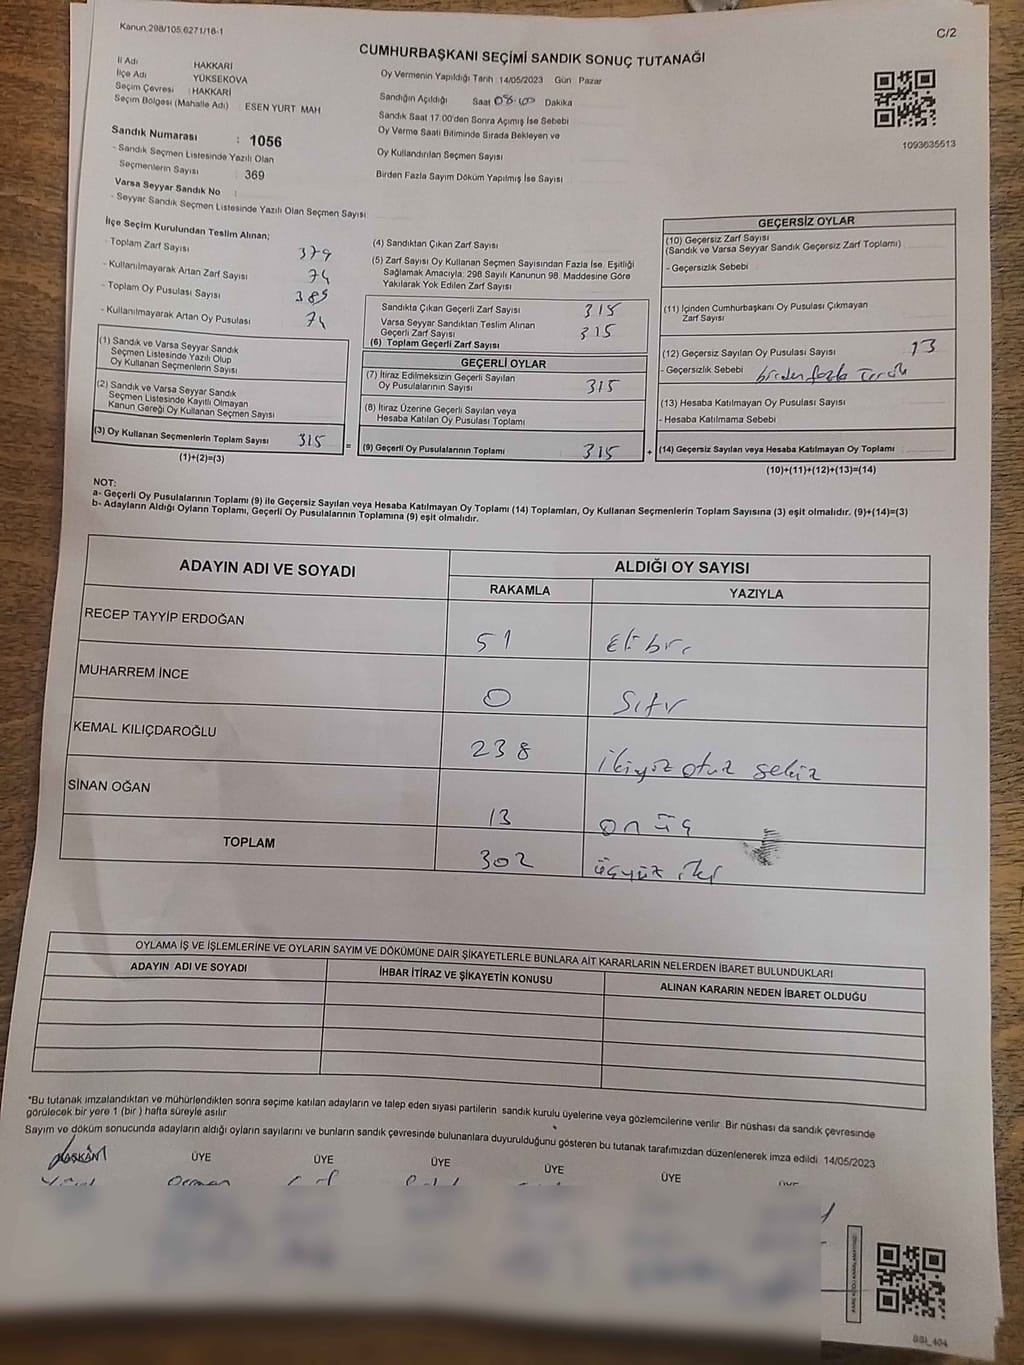 Kanun 298/105.6271/18-1
C/2
CUMHURBAŞKANI SEÇİMİ SANDIK SONUÇ TUTANAĞI
İl Adı HAKKARİ
İlçe Adı YÜKSEKOVA
Seçim Çevresi : HAKKARİ
Seçim Bölgesi (Mahalle Adı) ESEN YURT MAH
Sandık Numarası : 1056
- Sandık Seçmen Listesinde Yazılı Olan
Seçmenlerin Sayısı : 369
Varsa Seyyar Sandık No :
- Seyyar Sandık Seçmen Listesinde Yazılı Olan Seçmen Sayısı
Oy Vermenin Yapıldığı Tarih 14/05/2023 Gün Pazar
Sandığın Açıldığı Saat 08.00 Dakika
Sandık Saat 17.00'den Sonra Açımış İse Sebebi
Oy Verme Saati Bitiminde Sırada Bekleyen ve
Oy Kullandırılan Seçmen Sayısı
Birden Fazla Sayım Döküm Yapılmış İse Sayısı
1093635513
İlçe Seçim Kurulundan Teslim Alınan;
- Toplam Zarf Sayısı 379
- Kullanılmayarak Artan Zarf Sayısı 74
- Toplam Oy Pusulası Sayısı 389
- Kullanılmayarak Artan Oy Pusulası 74
(1) Sandık ve Varsa Seyyar Sandık
Seçmen Listesinde Yazılı Olup
Oy Kullanan Seçmenlerin Sayısı
(2) Sandık ve Varsa Seyyar Sandık
Seçmen Listesinde Kayıtlı Olmayan
Kanun Gereği Oy Kullanan Seçmen Sayısı
(3) Oy Kullanan Seçmenlerin Toplam Sayısı 315 =
(1)+(2)=(3)
(4) Sandıktan Çıkan Zarf Sayısı
(5) Zarf Sayısı Oy Kullanan Seçmen Sayısından Fazla İse, Eşitliği
Sağlamak Amacıyla; 298 Sayılı Kanunun 98. Maddesine Göre
Yakılarak Yok Edilen Zarf Sayısı
Sandıkta Çıkan Geçerli Zarf Sayısı 315
Varsa Seyyar Sandıktan Teslim Alınan
Geçerli Zarf Sayısı 315
(6) Toplam Geçerli Zarf Sayısı
GEÇERLİ OYLAR
(7) İtiraz Edilmeksizin Geçerli Sayılan
Oy Pusulalarının Sayısı 315
(8) İtiraz Üzerine Geçerli Sayılan veya
Hesaba Katılan Oy Pusulası Toplamı
(9) Geçerli Oy Pusulalarının Toplamı 315 +
GEÇERSİZ OYLAR
(10) Geçersiz Zarf Sayısı
(Sandık ve Varsa Seyyar Sandık Geçersiz Zarf Toplamı)
- Geçersizlik Sebebi
(11) İçinden Cumhurbaşkanı Oy Pusulası Çıkmayan
Zarf Sayısı
(12) Geçersiz Sayılan Oy Pusulası Sayısı 13
- Geçersizlik Sebebi birden fazla
(13) Hesaba Katılmayan Oy Pusulası Sayısı
- Hesaba Katılmama Sebebi
(14) Geçersiz Sayılan veya Hesaba Katılmayan Oy Toplamı
(10)+(11)+(12)+(13)=(14)
NOT:
a- Geçerli Oy Pusulalarının Toplamı (9) ile Geçersiz Sayılan veya Hesaba Katılmayan Oy Toplamı (14) Toplamları, Oy Kullanan Seçmenlerin Toplam Sayısına (3) eşit olmalıdır. (9)+(14)=(3)
b- Adayların Aldığı Oyların Toplamı, Geçerli Oy Pusulalarının Toplamına (9) eşit olmalıdır.
ADAYIN ADI VE SOYADI
ALDIĞI OY SAYISI
RAKAMLA YAZIYLA
RECEP TAYYİP ERDOĞAN 51 Elibir
MUHARREM İNCE 0 Sıfır
KEMAL KILIÇDAROĞLU 238 ikiyüz otuz sekiz
SİNAN OĞAN 13 on üç
TOPLAM 302 üçyüz iki
OYLAMA İŞ VE İŞLEMLERİNE VE OYLARIN SAYIM VE DÖKÜMÜNE DAİR ŞİKAYETLERLE BUNLARA AİT KARARLARIN NELERDEN İBARET BULUNDUKLARI
ADAYIN ADI VE SOYADI İHBAR İTİRAZ VE ŞİKAYETİN KONUSU ALINAN KARARIN NEDEN İBARET OLDUĞU
*Bu tutanak imzalandıktan ve mühürlendikten sonra seçime katılan adayların ve talep eden siyasi partilerin sandık kurulu üyelerine veya gözlemcilerine verilir. Bir nüshası da sandık çevresinde
görülecek bir yere 1 (bir ) hafta süreyle asılır
Sayım ve döküm sonucunda adayların aldığı oyların sayılarını ve bunların sandık çevresinde bulunanlara duyurulduğunu gösteren bu tutanak tarafımızdan düzenlenerek imza edildi. 14/05/2023
BAŞKAN ÜYE ÜYE ÜYE ÜYE ÜYE
Osman